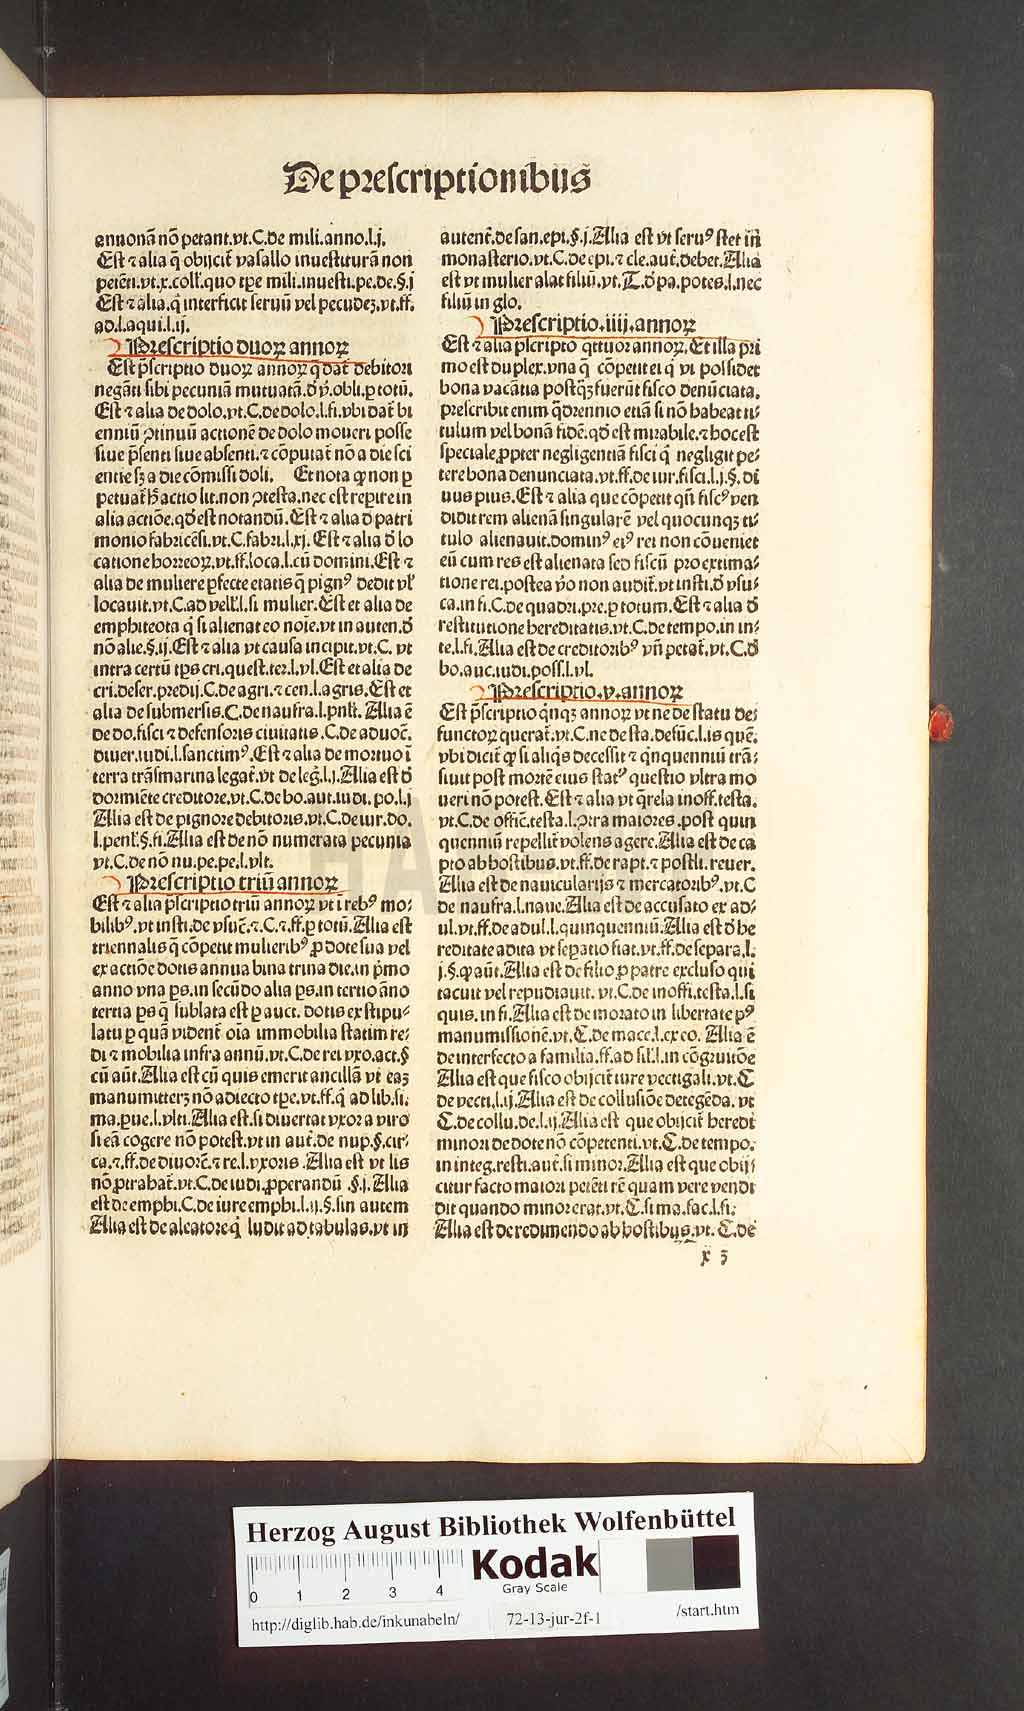 De prescriptionibus
annonā nō petant.vt.C.de mili.anno.l.j.
Est ⁊ alia q̄ obijcit᷒ vasallo inuestiturā non
petēti.vt.x.coll᷒.quo tp̄e mili.inuesti.pe.de.§.j
Est ⁊ alia.q̄ interficit seruū vel pecudeʒ.vt.ff.
ad.l.aqui.l.ij.
Prescriptio duoꝝ annoꝝ
Est p̄scriptio duoꝝ annoꝝ q̄ dat᷒ debitori
negāti sibi pecuniā mutuatā.
Est ⁊ alia de dolo.vt.C.de dolo.l.fi.vbi dat᷒ bi
enniū ꝯtinuū actionē de dolo moueri posse
siue p̄senti siue absenti.⁊ cōputat᷒ nō a die sci
entie sʒ a die cōmissi doli. Et nota ꝙ non ꝑ
petuat᷒ h̄ actio lit.non ꝯtesta.nec est reperire in
alia actiōe.qd̄ est notandū.Est ⁊ alia d̄ patri
monio fabricēsi.vt.C.fabri.l.xj.Est ⁊ alia d̄ lo
catione horreoꝝ.vt.ff.loca.l.cū domini.Est ⁊
alia de muliere ꝑfecte etatis q̄ pignꝰ dedit vl᷒
locauit.vt.C.ad vell᷒.l.si mulier.Est et alia de
emphiteota q̄ si alienat eo noīe.vt in auten.d̄
nō alie.§.ij.Est ⁊ alia vt causa incipit.vt.C. vt
intra certū tp̄s cri.quest.ter.l.vl.Est et alia de
cri.de ser.predij.C.de agri.⁊ cen.l.agris.Est et
alia de submersis.C.de naufra.l.pnl᷒t. Alia ē
de do.fisci ⁊ defensoris ciuitatis.C.de aduoc̄.
diuer.iudi.l.sanctimꝰ.Est ⁊ alia de mortuo ī
terra trāsmarina legat᷒.vt de leḡ.l.j.Alia est d̄
dormiēte creditore.vt.C.de bo.aut.iudi.po.l.j
Alia est de pignore debitoris.vt.C.de iur.do.
l.penl᷒.§.fi.Alia est de nō numerata pecunia
vt.C.de nō nu.pe.pe.l.vlt.
Prescriptio triū annoꝝ
Est ⁊ alia p̄scriptio triū annoꝝ vt ī rebꝰ mo⸗
bilibꝰ.vt insti.de vsuc̄.⁊.C.⁊.ff.ꝑ totū.Alia est
triennalis q̄ cōpetit mulieribꝰ ꝓ dote sua vel
ex actiōe dotis annua bina trina die.in p̄mo
anno vna ꝑs.in secūdo alia ꝑs.in tertio āno
tertia ꝑs q̄ sublata est ꝑ auct. dotis ex stipu⸗
latu ꝑ quā vident᷒ oīa immobilia statim re⸗
di ⁊ mobilia infra annū.vt.C.de rei vxo.act.§
cū aūt.Alia est cū quis emerit ancillā vt eaʒ
manumitterʒ nō adiecto tp̄e.vt.ff.q̄ ad lib.si.
ma.ꝑue.l.vlti.Alia est.si diuertat vxor a viro
si eā cogere nō potest.vt in aut᷒.de nup.§.cir⸗
ca.⁊.ff.de diuort̄.⁊ re.l.vxoris.Alia est vt lis
nō ꝓtrahat᷒.vt.C.de iudi.ꝓperandū.§.j.Alia
est de emphi.C.de iure emphi.l.ij.§.sin autem
Alia est de aleatore.q̄ ludit ad tabulas.vt in
autent̄.de san.epi.§.j.Alia est vt seruꝰ stet in
monasterio.vt.C.de epi.⁊ cle.aut᷒.debet.Alia
est vt mulier alat filiū.vt.C.d̄ pa.potes.l.nec
filiū in glo.
Prescriptio.iiij.annoꝝ
Est ⁊ alia p̄scriptio q̄ttuor annoꝝ.Et illa pri
mo est duplex.vna q̄ cōpetit ei q̄ vi possidet
bona vacātia postq̄ʒ fuerūt fisco denūciata.
prescribit enim q̄driennio etiā si nō habeat ti⸗
tulum vel bonā fidē.qd̄ est mirabile.⁊ hoc est
speciale ꝓpter negligentiā fisci q̄ negligit pe⸗
tere bona denunciata.vt.ff.de iur.fisci.l.j.§.di
uus pius.Est ⁊ alia que cōpetit qn̄ fiscꝰ ven
didit rem alienā singularē vel quocunqʒ ti⸗
tulo alienauit.dominꝰ eiꝰ rei non cōueniet
eū cum res est alienata sed fiscū pro extima⸗
tione rei.postea v̄o non audit᷒.vt insti.d̄ vsu⸗
ca.in fi.C.de quadri.pre.ꝑ totum.Est ⁊ alia d̄
restitutione hereditatis.vt.C.de tempo.in in⸗
te.l.fi.Alia est de creditoribꝰ vn̄ petat᷒.vt.C.d̄
bo.auc.iudi.poss.l.vl.
Prescriptio.v.annoꝝ
Est p̄scriptio q̄nqʒ annoꝝ vt ne de statu de⸗
functoꝝ querat᷒.vt.C.ne de sta.defūc.l.is quē.
vbi dicit᷒ ꝙ si aliq̄s decessit ⁊ q̄nquenniū trā⸗
siuit post mortē eius statꝰ questio vltra mo
ueri nō potest.Est ⁊ alia vt q̄rela inoff.testa.
vt.C.de offic̄.testa.l.ꝯtra maiores.post quin
quenniū repellit᷒ volens agere.Alia est de ca
pto ab hostibus.vt.ff.de capt.⁊ postli.reuer.
Alia est de nauicularijs ⁊ mercatoribꝰ.vt.C
de naufra.l.naue.Alia est de accusato ex ad⸗
ul.vt.ff.de adul.l.quinquenniū.Alia est d̄ he
reditate adita vt seꝑatio fiat.vt.ff.de separa.l.
j.§.ꝙ aūt.Alia est de filio ꝓ patre excluso qui
tacuit vel repudiauit. vt.C.de inoffi.testa.l.si
quis.in fi.Alia est de morato in libertate pꝰ
manumissionē.vt.C.de mace.l.ex eo. Alia ē
de interfecto a familia.ff.ad sil᷒l.in cōgruitōe
Alia est que fisco obijcit᷒ iure vectigali.vt.C
de vecti.l.ij.Alia est de collusiōe detegēda. vt
C.de collu.de.l.ij.Alia est que obijcit᷒ heredi
minori de dote nō cōpetenti.vt.C.de tempo.
in integ.resti.aut᷒.si minor.Alia est que obij⸗
citur facto maiori petēti rē quam vere vendi
dit quando minor erat.vt.C.si ma.fac.l.fi.
Alia est de redimendo ab hostibus.vt. C.de
x 3
Herzog August Bibliothek Wolfenbüttel
Kodak
Gray Scale
0 1 2 3 4
http://diglib.hab.de/inkunabeln/ 72-13-jur-2f-1 /start.htm